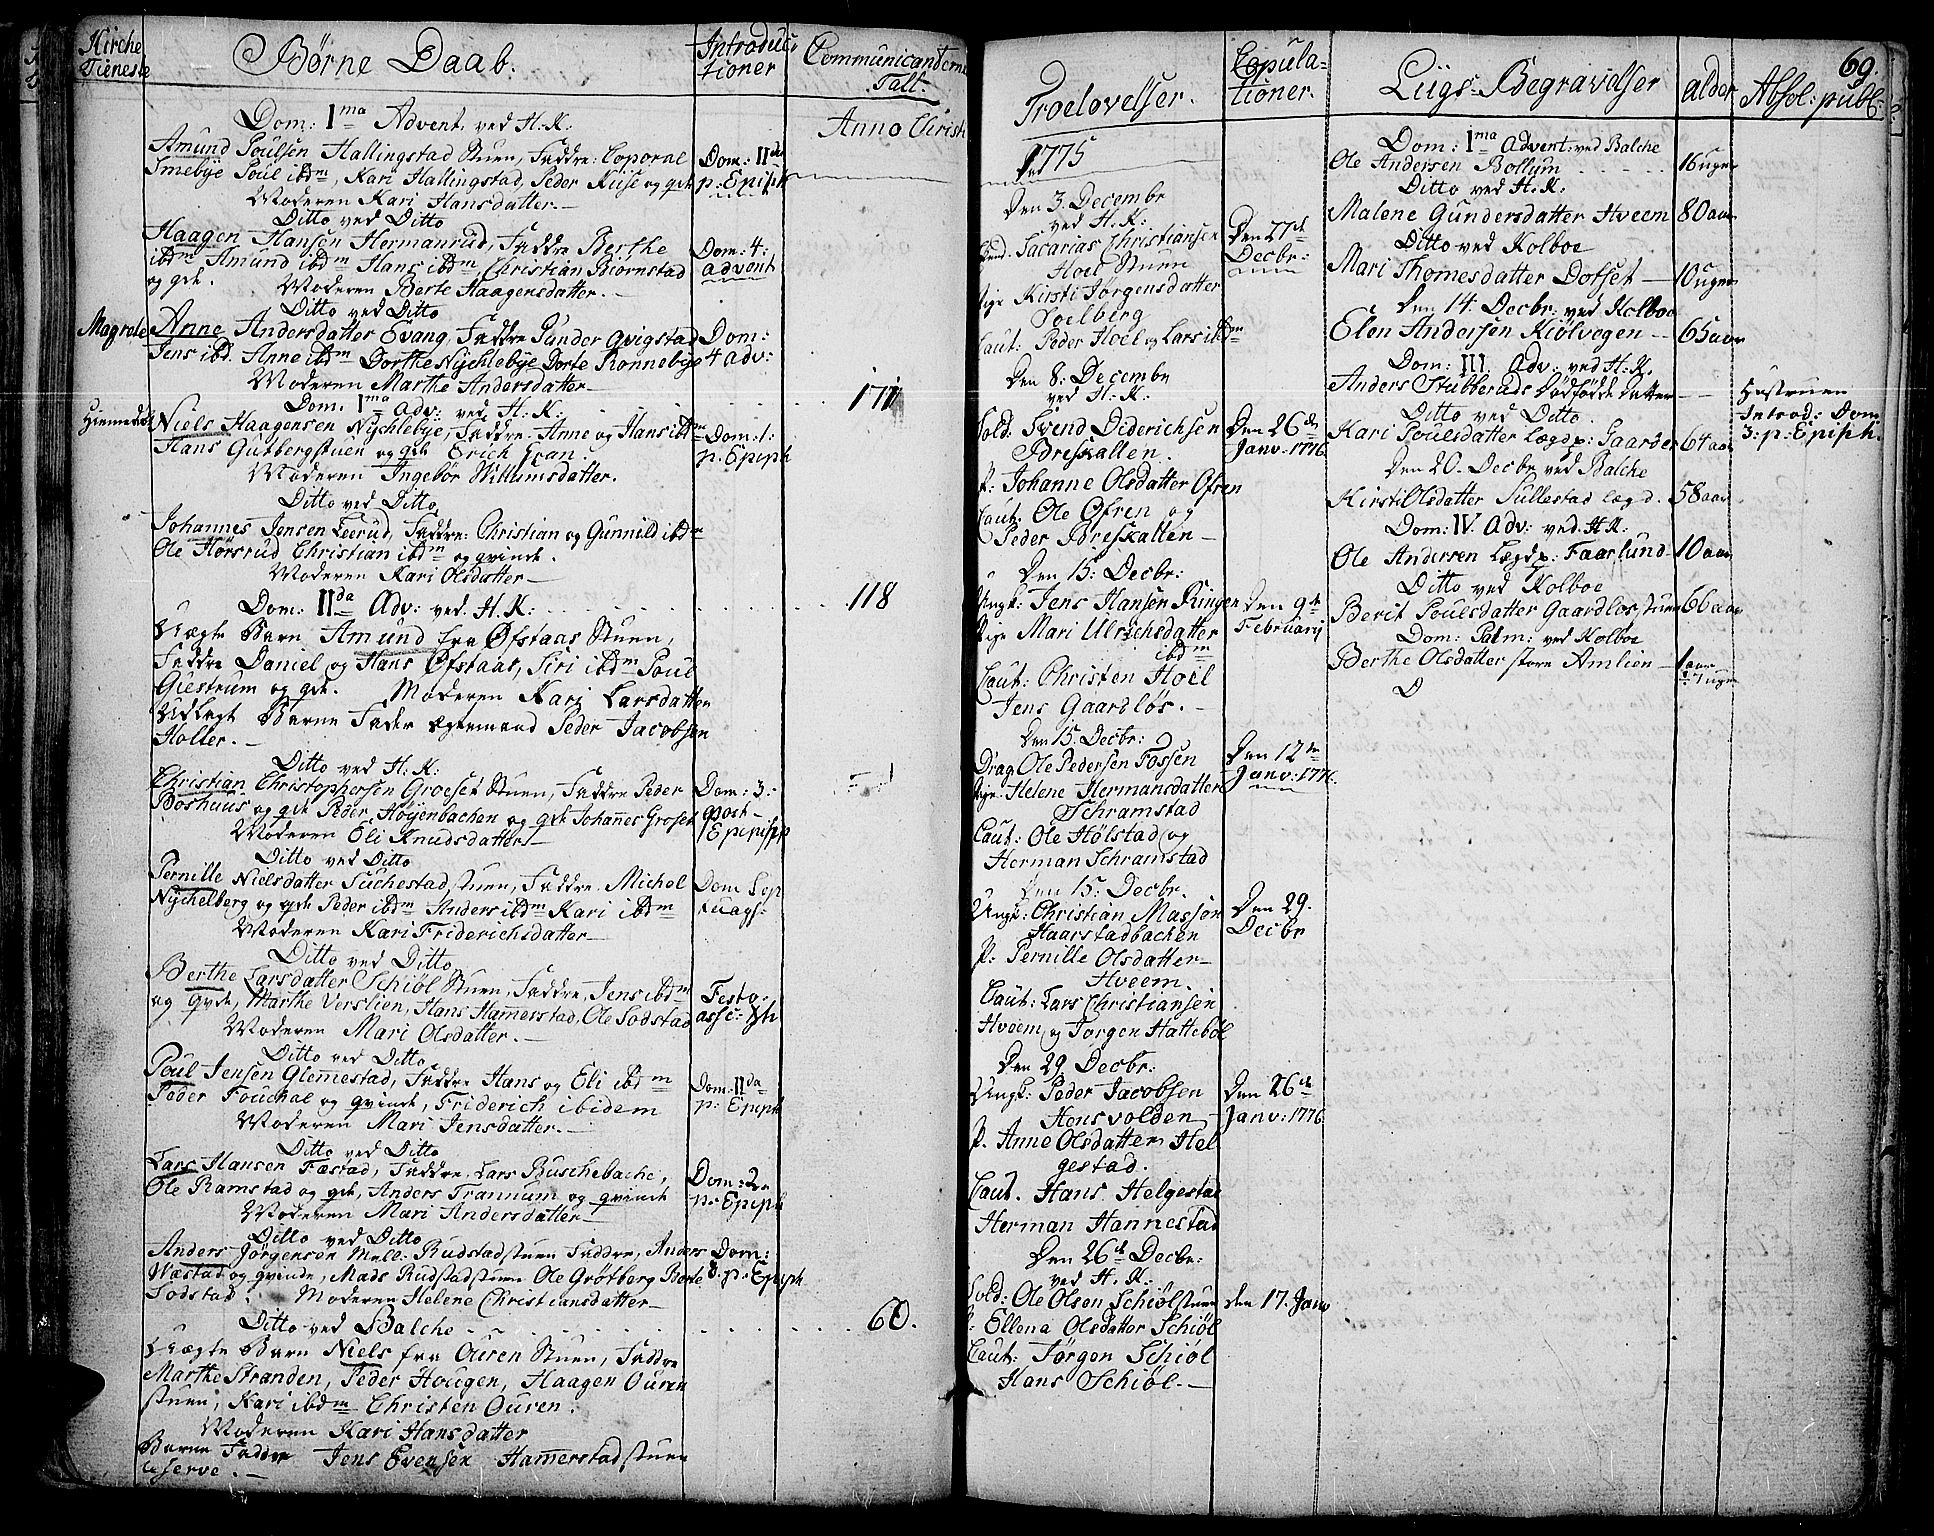 Kirche
Tieneste
Børne Daab.
Introduc-
tioner
Communicanterne
Tall.
Anno Christi
Dom: 1ma Advent: ved H: K:
Amund Poulsen Hallingstad Stuen, Faddre: Coporal
Smebye Poul ibdm, Kari Hallingstad, Peder Kiise og qde
Moderen Kari Hansdatter.
Dom: IIda
p: Epiph
Ditto ved Ditto
Haagen Hansen Hermanrud, Faddre Berthe
ibdm Amund ibdm Hans ibdm, Christian Biørnstad
og qde. Moderen Berte Haagensdatter.
Dom: 4:
advent
Ditto ved Ditto
Anne Andersdatter Evang, Faddre Gunder Qvigstad
Jens ibd. Anne ibdm Dorthe Nychlebye Dorte Rønnebye
Moderen Marthe Andersdatter
Dom:
4 adv:
Dom: 1ma adv: ved H: K: 171
Niels Haagensen Nychlebye, Faddre Anne og Hans ibdm
Hans Gutbergstuen og qde Erich
Moderen Ingebor Willumsdatter.
Dom: 1:
p: Epiph
Ditto ved Ditto
Johannes Jensen Leerud, Faddre: Christian og Gunnild ibdm
Ole Hørsrud Christian ibdm og qvinde.
Moderen Kari Olsdatter
Dom: IIda Adv: ved H: K: 118
Uægte Barn Amund fra Øfstaas Stuen,
Faddre Daniel og Hans Øfstaas, Siri ibdm Poul
Giestrum og qde. Moderen Kari Larsdatter
Udlagt Barne Fader Egtemand Peder Jacobsen
Holter.
Ditto ved H: K:
Christian Christophersen Groeset Stuen, Faddre Peder
Boshuus og qde Peder Høyenbachen og qde Johannes Groset
Moderen Eli Knudsdatter
Dom: 3:
post
Epipiph
Ditto ved Ditto
Pernille Nielsdatter Suchestad stuen, Faddre Michel
Nychelberg og qde Peder ibdm Anders ibdm Kari ibdm
Moderen Kari Friderichsdatter
Dom Sep
tuags:
Ditto ved Ditto
Berthe Larsdatter Schiøl Stuen, Faddre, Jens ibdm
og qvde, Marthe Verslien, Hans Hamerstad, Ole Sodstad
Moderen Mari Olsdatter.
Festo
asse: Xti
Ditto ved Ditto
Poul Jensen Glemestad, Faddre Hans og Eli ibdm
Peder Fouchal og qvinde, Friderich ibidem
Moderen Mari Jensdatter.
Dom: IIda
p: Epiph
Ditto ved Ditto
Lars Hansen Fæstad, Faddre Lars Buschebache,
Ole Ramstad og qde, Anders Trannum og qvinde
Moderen Mari Andersdatter
Dom: 2
p: Epiph
Ditto ved Ditto
Anders Jørgensen Mell: Rudstad stuen Faddre, Anders
Wæstad og qvinde, Mads Rudstadstuen Ole Grøtberg Berte
Sodstad. Moderen Helene Christiansdatter
Dom:
3: p: Epiph
Ditto ved Balche 60.
Uægte Barn Niels fra Ouren Stuen, Faddre
Marthe Stranden, Peder Hougen, Haagen Ouren
stuen, Kari ibdm Christen Ouren.
Moderen Kari Hansdatter
Barne Fader Jens Evensen Hamerstadstuen
Troelovelser.
Copula-
tioner.
1775
Den 3. Decembr
ved H: K:
Sacarias Christiansen
Hoel Stuen
Pige Kirsti Jørgensdatter
Soelberg
Caut: Peder Hoel og Lars ibdm
Den 27de
Decbr:
Den 8: Decembr
ved H: K:
Sold: Svend Diderichsen
Idreskallen.
P: Johanne Olsdatter Øfren
Caut: Ole Øfren og
Peder Idreskallen
Den 26de
Janv: 1776
Den 15: Decbr:
Ungk: Jens Hansen Ringen
Pige Mari Ulrichsdatter
ibdm
Caut: Christen Hoel
Jens Gaardløs.
Den 9de
Februarij
Den 15. Decbr:
Drag Ole Pedersen Fossen
Pige Helene Hermansdatter
Schramstad
Caut: Ole Hølstad og
Herman Schramstad
Den 12te
Janv: 1776
Den 15: Decbr.
Ungk: Christian Massøn
Haarstadbachen
P: Pernille Olsdatter
Hveem.
Caut: Lars Christiansen
Hveem og Jørgen Hattebøl
Den 29.
Decbr
Den 29 Decbr:
Ungk: Peder Jacobsen
Honsvolden
P. Anne Olsdatter Hel
gestad.
Caut. Hans Helgestad
Herman Hannestad
Den 26de
Janv: 1776
Den 26de Decbr:
ved H. K:
Sold: Ole Olsen Schiølstuen
P: Ellena Olsdatter Schiøl
Caut: Jørgen Schiøl
Hans Schiøl.
den 17. Janv
Liigs-Begravelser
alder
Absol: publ:
69.
Dom: 1ma Advent: ved Balche
Ole Andersen Bollum 16 uger
Ditto ved H. K:
Malene Gundersdatter Hveem 80 aar
Ditto ved Kolboe
Mari Thomesdatter Dotset 10 uger
Den 14. Decbr: ved Kolboe
Elen Andersen Kiølvegen 65 aar
Dom: III. Adv: ved H. K.
Anders Stubberuds Dødfødde Datter
Hustruen
Introd: Dom
3: p: Epiph.
Ditto ved Ditto
Kari Poulsdatter Lægdp: Gaarder 64 aar
Den 20. Decbr ved Balche
Kirsti Olsdatter Sullestad Lægd. 58 aar
Dom: IV. Adv: ved H: K:
Ole Andersen Lægdp: Faarlund 10 aar
Ditto ved Kolboe
Berit Poulsdatter Gaardlos stuen 66 aar
Dom: Palm: ved Kolboe
Berthe Olsdatter store Amlien 1 aar
7 uger